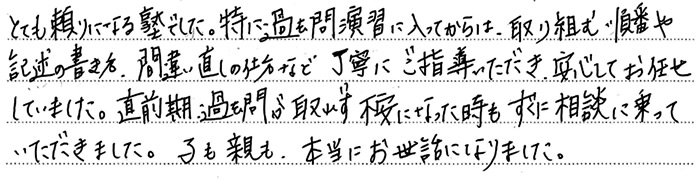 とても頼りになる塾でした。特に過去問演習に入ってからは、取り組む順番や
記述の書き方、間違い直しの仕方など丁寧にご指導いただき、安心してお任せ
していました。直前期、過去問が取れず不安になった時もすぐに相談に乗って
いただきました。子も親も、本当にお世話になりました。